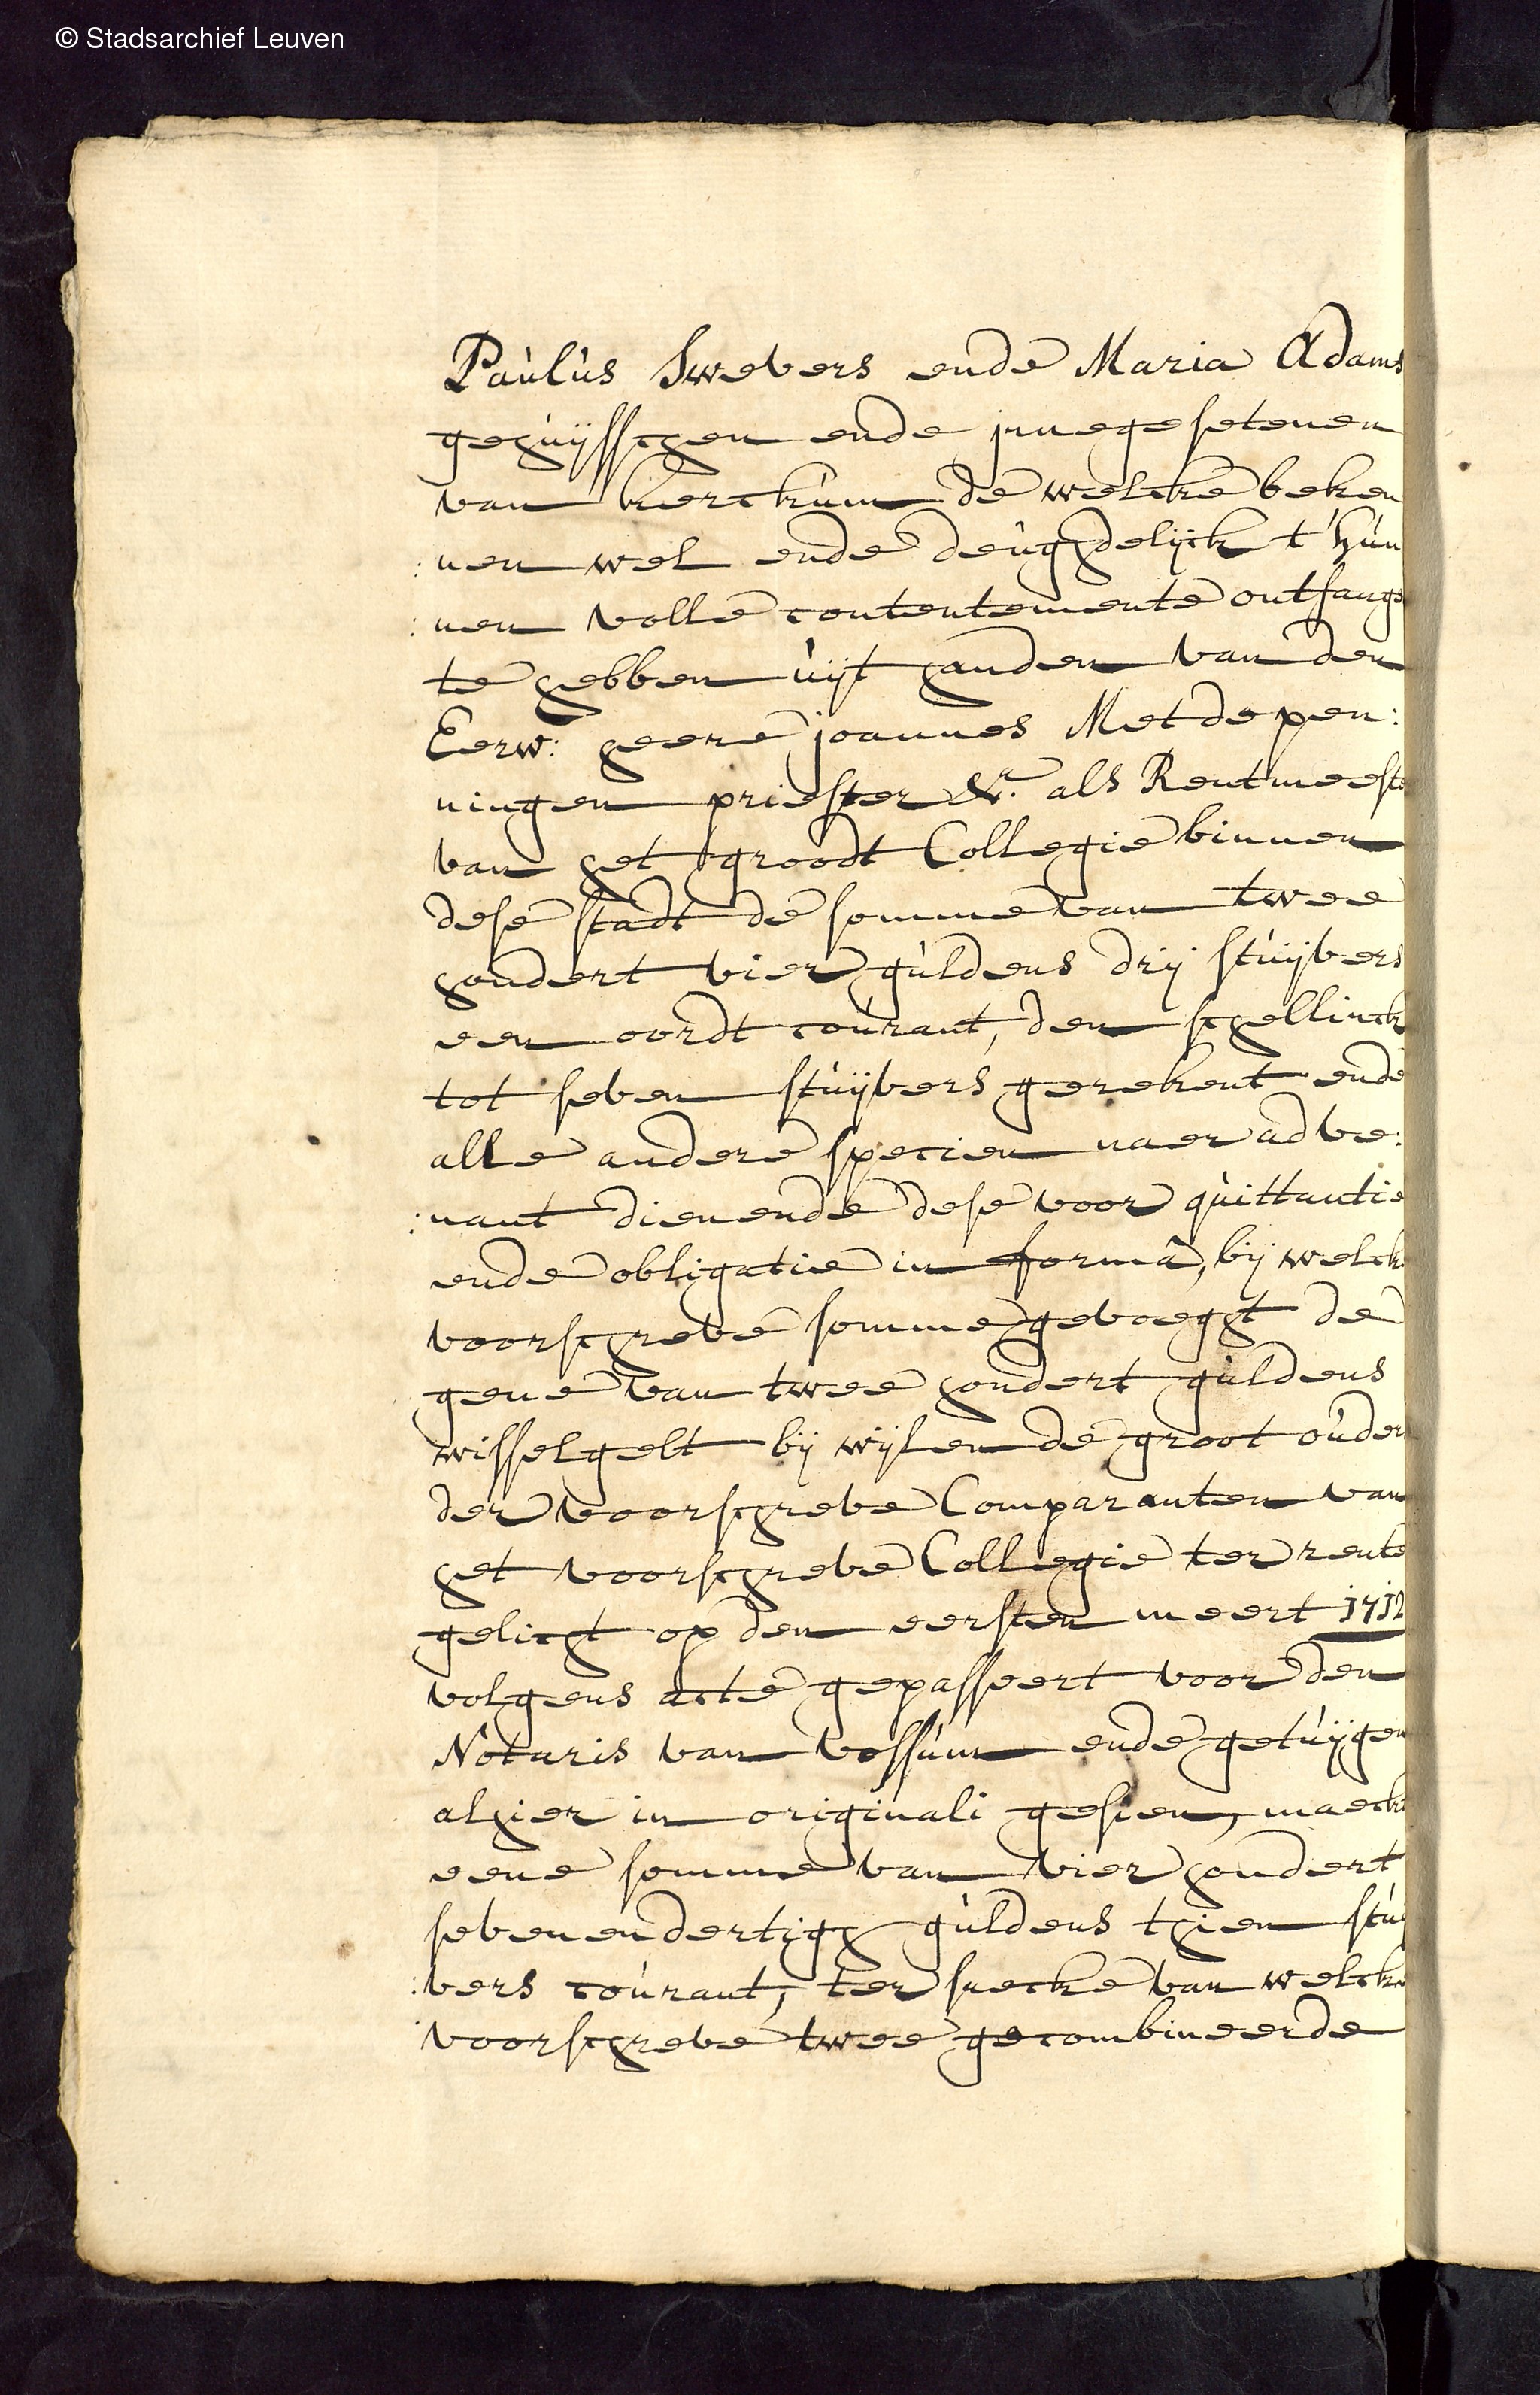 © Stadsarchief Leuven
Paulus Swevers ende Maria Adams
gehuijsschen ende jnnegesetenen
van kerckum de welcke beken
:nen wel ende deughdelijck t'hun
:nen volle contentemente ontfange
te hebben uijt handen van den
Eerw: heere joannes Metdepen:
ningen priester &a. als Rentmeeste
van het groodt Collegie binnen
dese stadt de somme van twee
hondert vier guldens drij stuijvers
een oordt courant, den schellinck
tot seven stuijvers gerekent ende
alle andere specien naer adve:
:nant dienende dese voor quittantie
ende obligatie in forma, bij welck
voorschreve somme gevoeght de
gene van twee hondert guldens
wisselgelt bij wijlen de groot ouder
der voorschreve Comparanten van
het voorschreve Collegie ter rente
gelicht op den eersten meert 1712
volgens acte gepasseert voor den
Notaris van vossum ende getuijgen
alhier in originali gesien, maeckt
eene somme van vier hondert
sevenendertigh guldens thien stuij
:vers courant, ter saecke van welcke
voorschreve twee gecombineerde